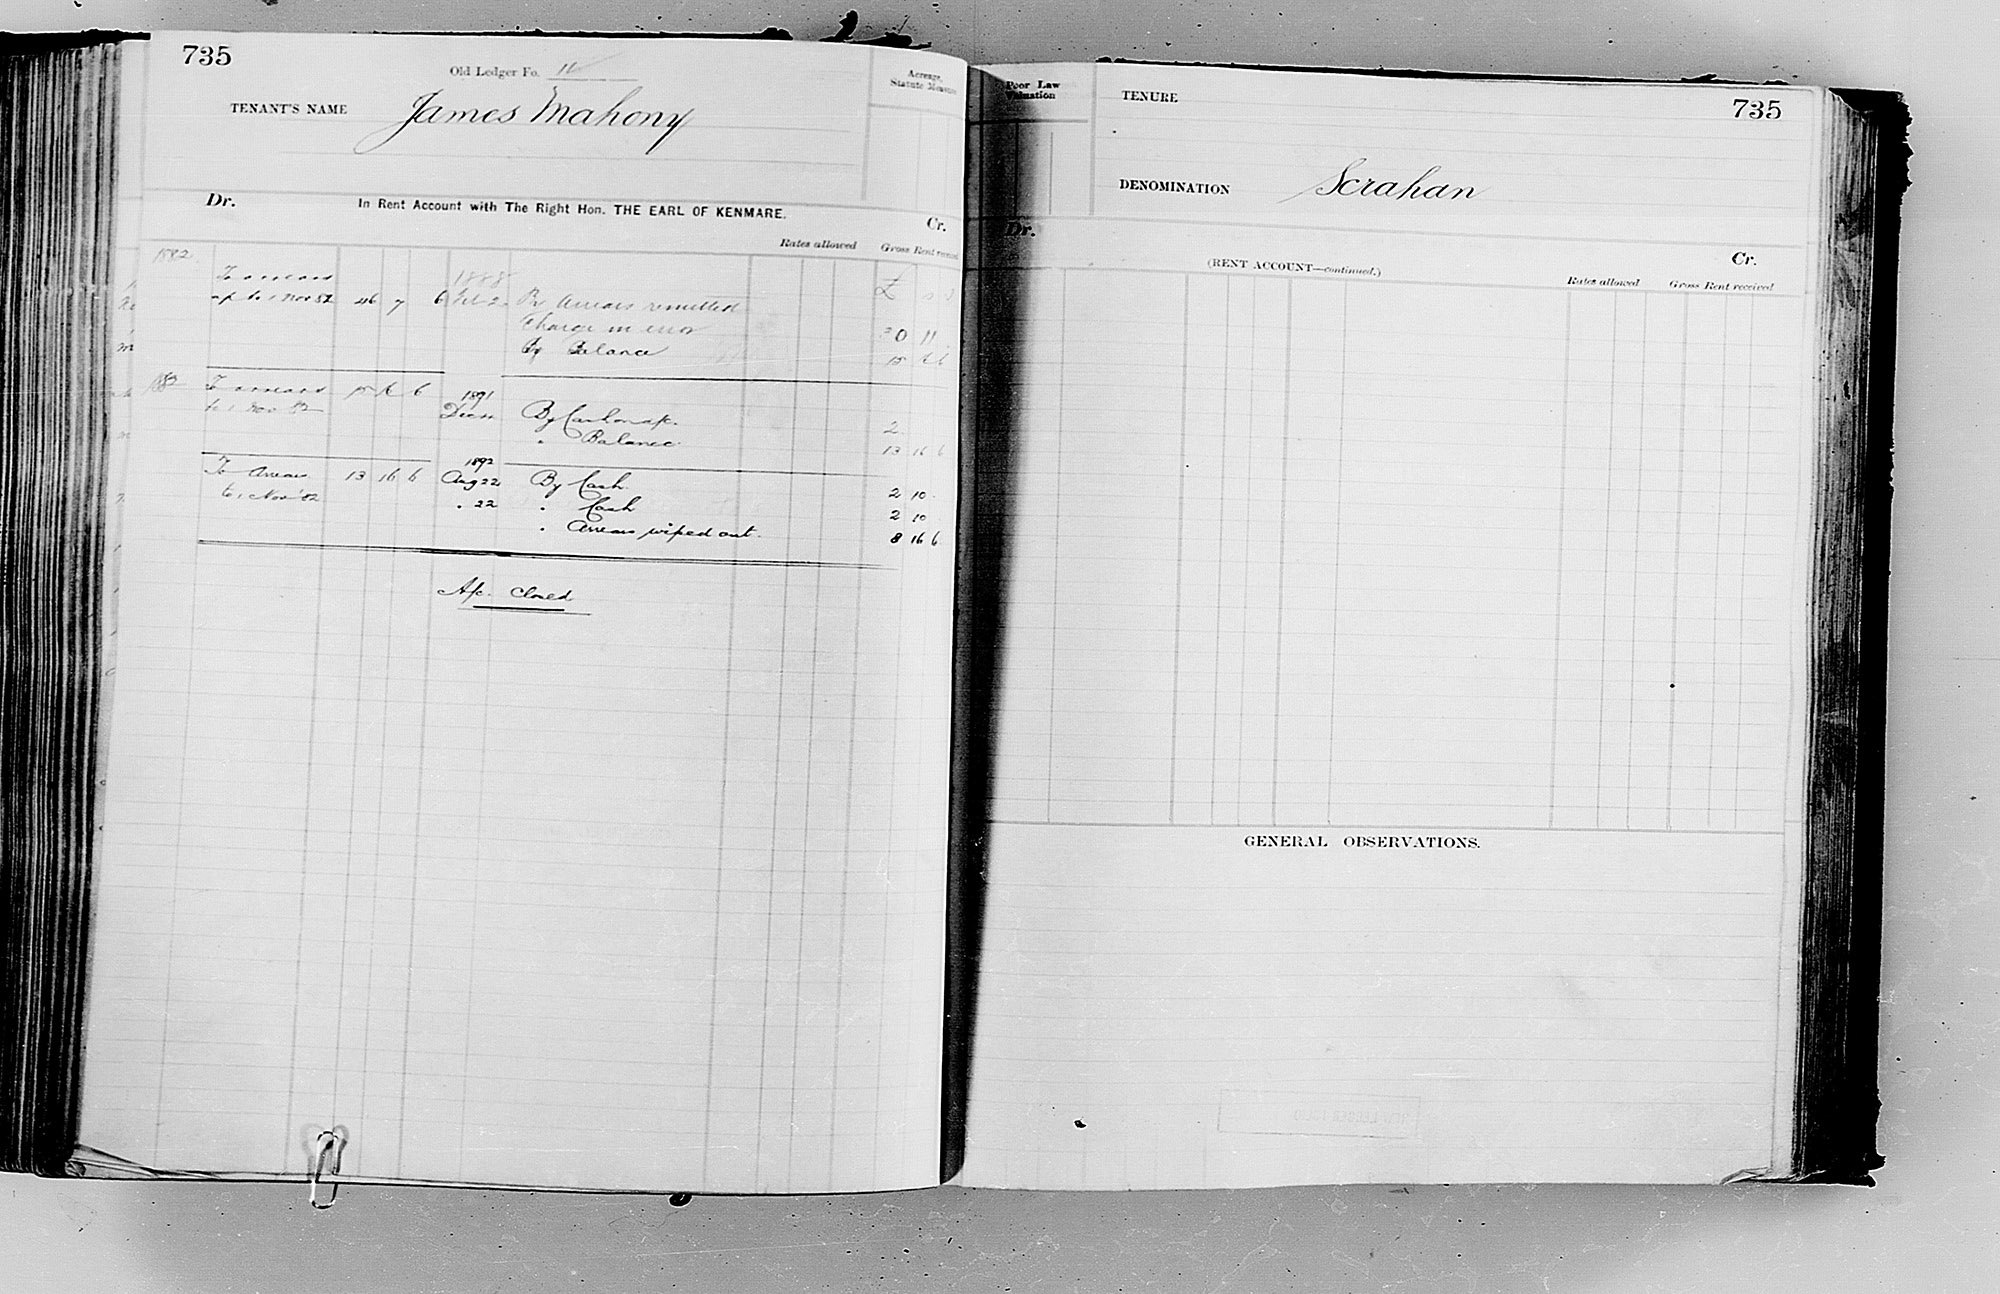 735
Old Ledger Fo.
TENANT'S NAME James Mahony
Acreage,
Statute Measure
Dr. In Rent Account with The Right Hon. THE EARL OF KENMARE. Cr.
Rates allowed Gross Rent received
1882 1888 £
To arrears
up to 1 Nov 82 46 7 6 By Arrears remitted
Charge in error 11
By Balance 15
To arrears 6 1891
to 1 Nov 82 Dec By Cash 2
" Balance 13 16 6
1892
To Arrears 13 16 6 Aug 22 By Cash 2 10
to 1 Nov '82 " 22 " Cash 2 10
" Arrears wiped out. 8 16 6
A/c. Closed
Poor Law
Valuation
TENURE
735
DENOMINATION Scrahan
Dr.
Cr.
(RENT ACCOUNT—continued.)
Rates allowed Gross Rent received
GENERAL OBSERVATIONS.